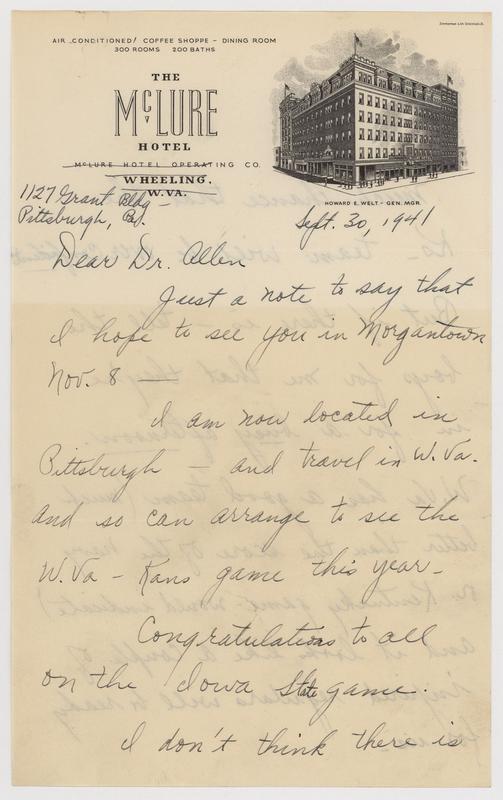 Zimmerman Lith Cincinnati, O.
AIR CONDITIONED! COFFEE SHOPPE - DINING ROOM
300 ROOMS 200 BATHS
THE
McLURE
HOTEL
McLURE HOTEL OPERATING CO.
WHEELING,
W. VA.
HOWARD E. WELT - GEN. MGR.
1127 Grant Bldg -
Pittsburgh, Pa.
Sept. 30, 1941
Dear Dr. Allen
Just a note to say that
I hope to see you in Morgantown
Nov. 8 —
I am now located in
Pittsburgh — and travel in W. Va.
and so can arrange to see the
W. Va - Kans game this year -
Congratulations to all
on the Iowa State game.
I don't think there is